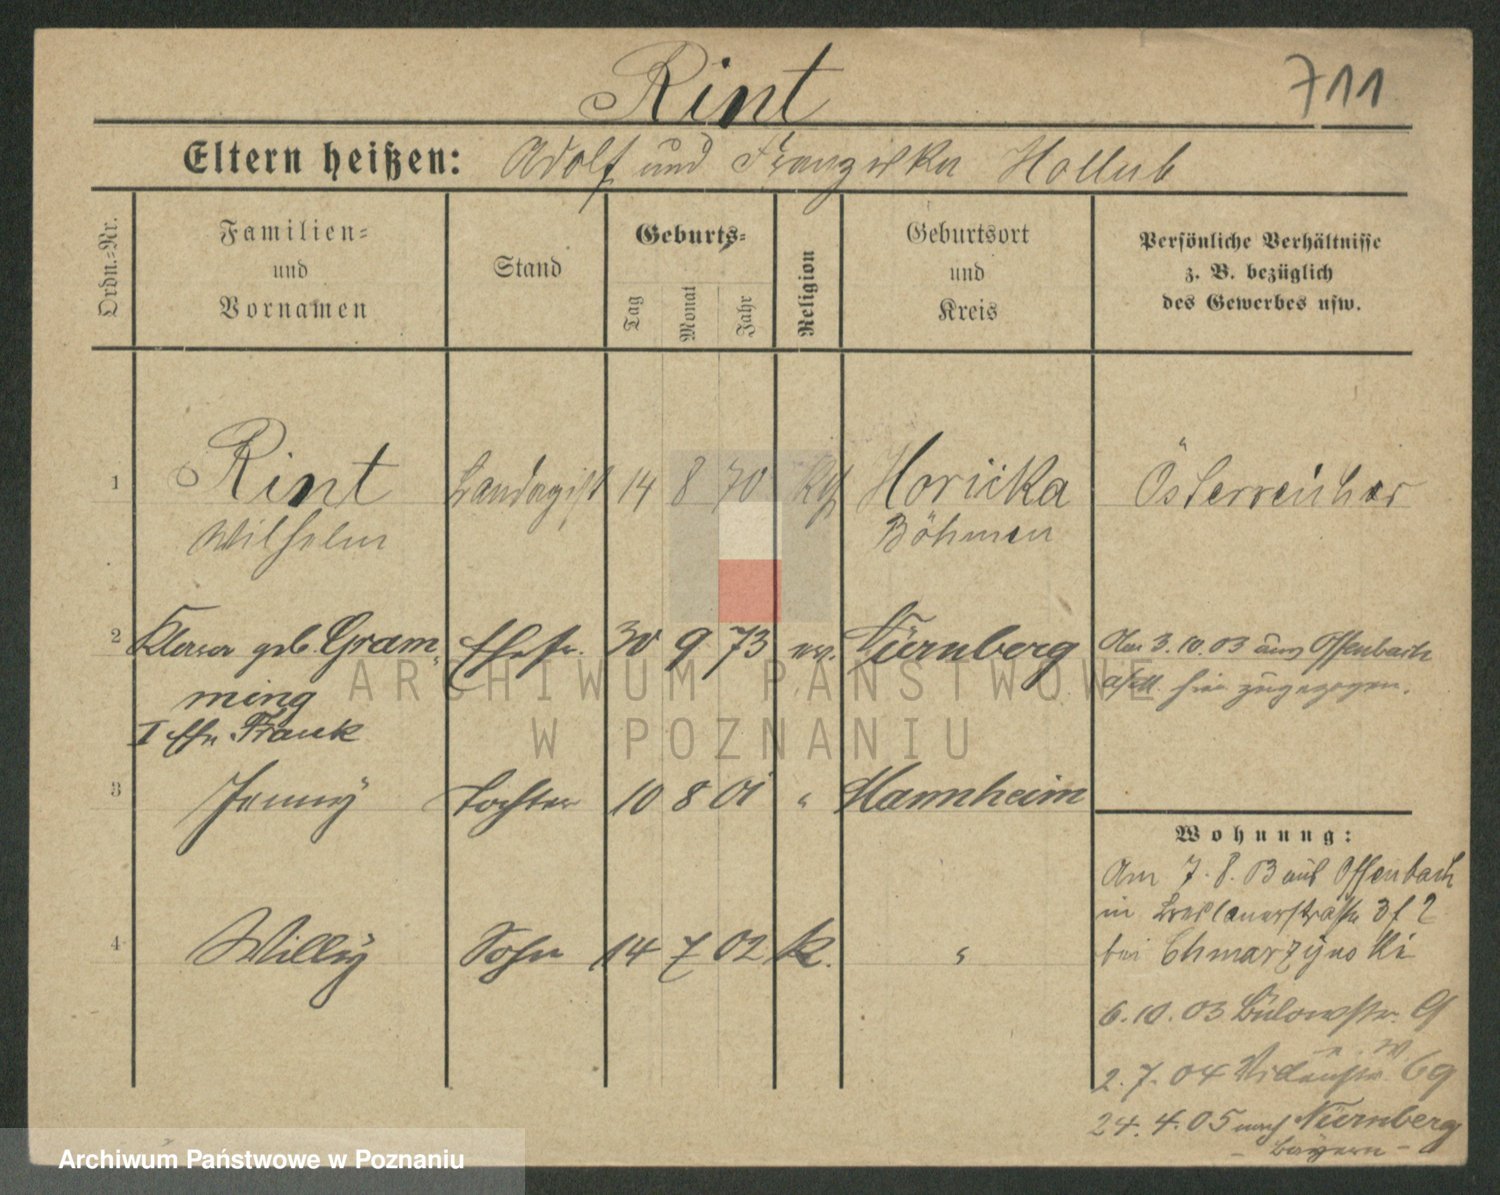 Rint
711
Eltern heißen: Adolf und Franziska Hollub
Ordn.-Nr.
Familien-
und
Vornamen
Stand
Geburts-
Tag
Monat
Jahr
Religion
Geburtsort
und
Kreis
Persönliche Verhältnisse
z. B. bezüglich
des Gewerbes usw.
1 Rint 14 8 70 Kth Horicka Österreicher
Wilhelm Böhmen
2 Klara geb. Gram- Ehefr. 30 9 73 ev. Nürnberg Am 3.10.03 aus Offenbach
ming a/M hier zugezogen.
I Ehe Frank
3 Jenny Tochter 10 8 01 " Mannheim
4 Willy Sohn 14 7 02 k. "
Wohnung:
Am 7.8.03 aus Offenbach
in Breslauerstraße
bei Chmarzynski
6.10.03 Bülowstr. 9
2.7.04 69
24.4.05 nach Nürnberg
- Bayern -
ARCHIWUM PAŃSTWOWE
W POZNANIU
Archiwum Państwowe w Poznaniu